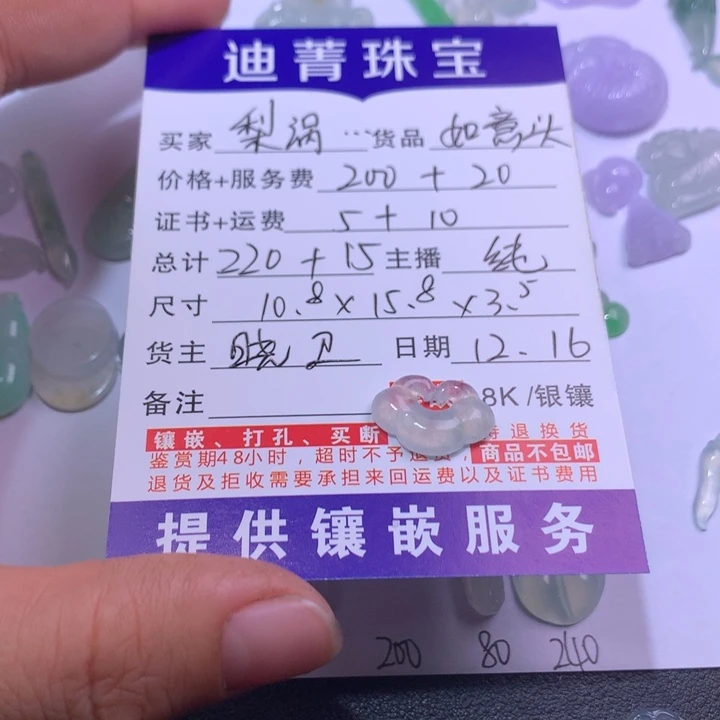 迪菁珠宝
买家 梨涡 ... 货品 如意头
价格+服务费 200 + 20
证书+运费 5 + 10
总计 220 + 15 主播 纯
尺寸 10.8 x 15.8 x 3.5
货主 晓卫 日期 12.16
备注 8K/银镶
镶嵌、打孔、买断 退换货
鉴赏期48小时，超时不予退货，商品不包邮
退货及拒收需要承担来回运费以及证书费用
提供镶嵌服务
200 80 240